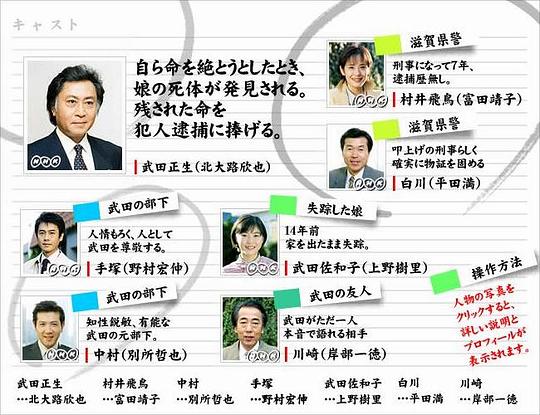 キャスト
自ら命を絶とうとしたとき、
娘の死体が発見される。
残された命を
犯人逮捕に捧げる。
武田正生(北大路欣也)
NHK
滋賀県警
刑事になって7年、
逮捕歴無し。
村井飛鳥(富田靖子)
NHK
滋賀県警
叩上げの刑事らしく
確実に物証を固める
白川(平田満)
NHK
武田の部下
人情もろく、人として
武田を尊敬する。
手塚(野村宏伸)
NHK
失踪した娘
14年前
家を出たまま失踪。
武田佐和子(上野樹里)
NHK
武田の部下
知性鋭敏、有能な
武田の元部下。
中村(別所哲也)
NHK
武田の友人
武田がただ一人
本音で語れる相手
川崎(岸部一徳)
NHK
操作方法
人物の写真を
クリックすると、
詳しい説明と
プロフィールが
表示されます。
武田正生 村井飛鳥 中村 手塚 武田佐和子 白川 川崎
…北大路欣也 …富田靖子 …別所哲也 …野村宏伸 …上野樹里 …平田満 …岸部一徳